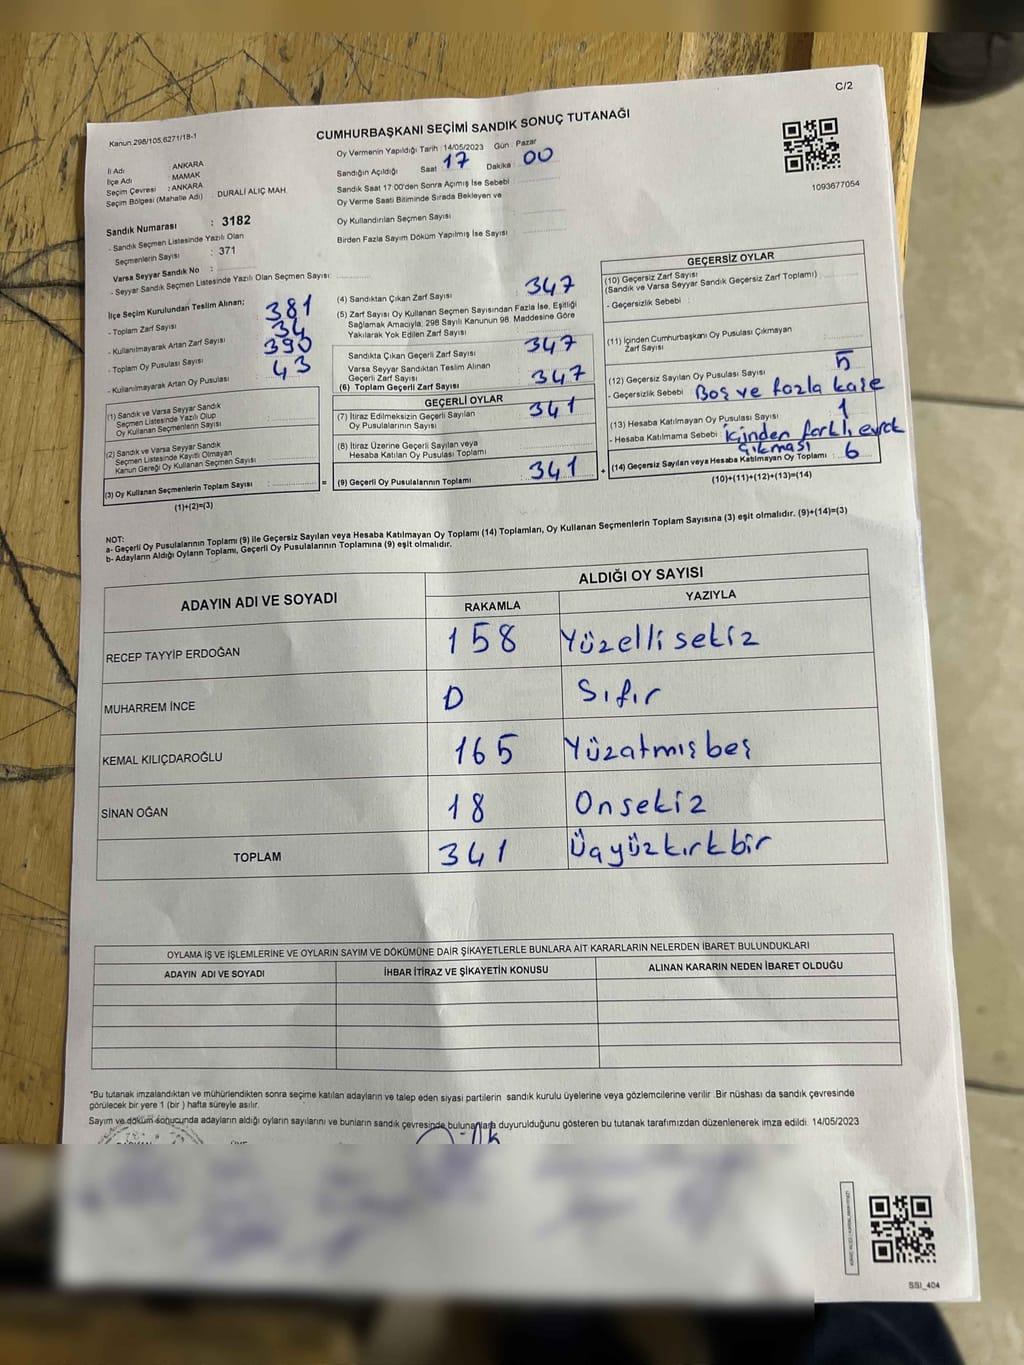 C/2
Kanun 298/105,6271/18-1
CUMHURBAŞKANI SEÇİMİ SANDIK SONUÇ TUTANAĞI
1093677054
İl Adı : ANKARA
İlçe Adı : MAMAK
Seçim Çevresi : ANKARA
Seçim Bölgesi (Mahalle Adı) : DURALİ ALIÇ MAH.
Sandık Numarası : 3182
- Sandık Seçmen Listesinde Yazılı Olan
Seçmenlerin Sayısı : 371
Varsa Seyyar Sandık No :
- Seyyar Sandık Seçmen Listesinde Yazılı Olan Seçmen Sayısı:
Oy Vermenin Yapıldığı Tarih : 14/05/2023 Gün : Pazar
Sandığın Açıldığı Saat 17 Dakika : 00
Sandık Saat 17 00'den Sonra Açımış İse Sebebi :
Oy Verme Saati Bitiminde Sırada Bekleyen ve
Oy Kullandırılan Seçmen Sayısı :
Birden Fazla Sayım Döküm Yapılmış İse Sayısı :
İlçe Seçim Kurulundan Teslim Alınan;
- Toplam Zarf Sayısı : 381
- Kullanılmayarak Artan Zarf Sayısı : 34
- Toplam Oy Pusulası Sayısı : 390
- Kullanılmayarak Artan Oy Pusulası : 43
(1) Sandık ve Varsa Seyyar Sandık
Seçmen Listesinde Yazılı Olup
Oy Kullanan Seçmenlerin Sayısı
(2) Sandık ve Varsa Seyyar Sandık
Seçmen Listesinde Kayıtlı Olmayan
Kanun Gereği Oy Kullanan Seçmen Sayısı :
(3) Oy Kullanan Seçmenlerin Toplam Sayısı : =
(1)+(2)=(3)
(4) Sandıktan Çıkan Zarf Sayısı : 347
(5) Zarf Sayısı Oy Kullanan Seçmen Sayısından Fazla İse, Eşitliği
Sağlamak Amacıyla, 298 Sayılı Kanunun 98. Maddesine Göre
Yakılarak Yok Edilen Zarf Sayısı :
Sandıkta Çıkan Geçerli Zarf Sayısı : 347
Varsa Seyyar Sandıktan Teslim Alınan
Geçerli Zarf Sayısı
(6) Toplam Geçerli Zarf Sayısı : 347
GEÇERLİ OYLAR
(7) İtiraz Edilmeksizin Geçerli Sayılan
Oy Pusulalarının Sayısı : 341
(8) İtiraz Üzerine Geçerli Sayılan veya
Hesaba Katılan Oy Pusulası Toplamı :
(9) Geçerli Oy Pusulalarının Toplamı : 341 +
GEÇERSİZ OYLAR
(10) Geçersiz Zarf Sayısı
(Sandık ve Varsa Seyyar Sandık Geçersiz Zarf Toplamı) :
- Geçersizlik Sebebi :
(11) İçinden Cumhurbaşkanı Oy Pusulası Çıkmayan
Zarf Sayısı :
(12) Geçersiz Sayılan Oy Pusulası Sayısı : 5
- Geçersizlik Sebebi : Boş ve fazla kaşe
(13) Hesaba Katılmayan Oy Pusulası Sayısı : 1
- Hesaba Katılmama Sebebi : İçinden farklı evrak
Çıkması
(14) Geçersiz Sayılan veya Hesaba Katılmayan Oy Toplamı : 6
(10)+(11)+(12)+(13)=(14)
NOT:
a- Geçerli Oy Pusulalarının Toplamı (9) ile Geçersiz Sayılan veya Hesaba Katılmayan Oy Toplamı (14) Toplamları, Oy Kullanan Seçmenlerin Toplam Sayısına (3) eşit olmalıdır. (9)+(14)=(3)
b- Adayların Aldığı Oyların Toplamı, Geçerli Oy Pusulalarının Toplamına (9) eşit olmalıdır.
ADAYIN ADI VE SOYADI ALDIĞI OY SAYISI
RAKAMLA YAZIYLA
RECEP TAYYİP ERDOĞAN 158 Yüzelli sekiz
MUHARREM İNCE 0 Sıfır
KEMAL KILIÇDAROĞLU 165 Yüzatmış beş
SİNAN OĞAN 18 Onsekiz
TOPLAM 341 Üçyüzkırkbir
OYLAMA İŞ VE İŞLEMLERİNE VE OYLARIN SAYIM VE DÖKÜMÜNE DAİR ŞİKAYETLERLE BUNLARA AİT KARARLARIN NELERDEN İBARET BULUNDUKLARI
ADAYIN ADI VE SOYADI İHBAR İTİRAZ VE ŞİKAYETİN KONUSU ALINAN KARARIN NEDEN İBARET OLDUĞU
*Bu tutanak imzalandıktan ve mühürlendikten sonra seçime katılan adayların ve talep eden siyasi partilerin sandık kurulu üyelerine veya gözlemcilerine verilir. Bir nüshası da sandık çevresinde
görülecek bir yere 1 (bir ) hafta süreyle asılır.
Sayım ve döküm sonucunda adayların aldığı oyların sayılarını ve bunların sandık çevresinde bulunanlara duyurulduğunu gösteren bu tutanak tarafımızdan düzenlenerek imza edildi. 14/05/2023
SSİ_404